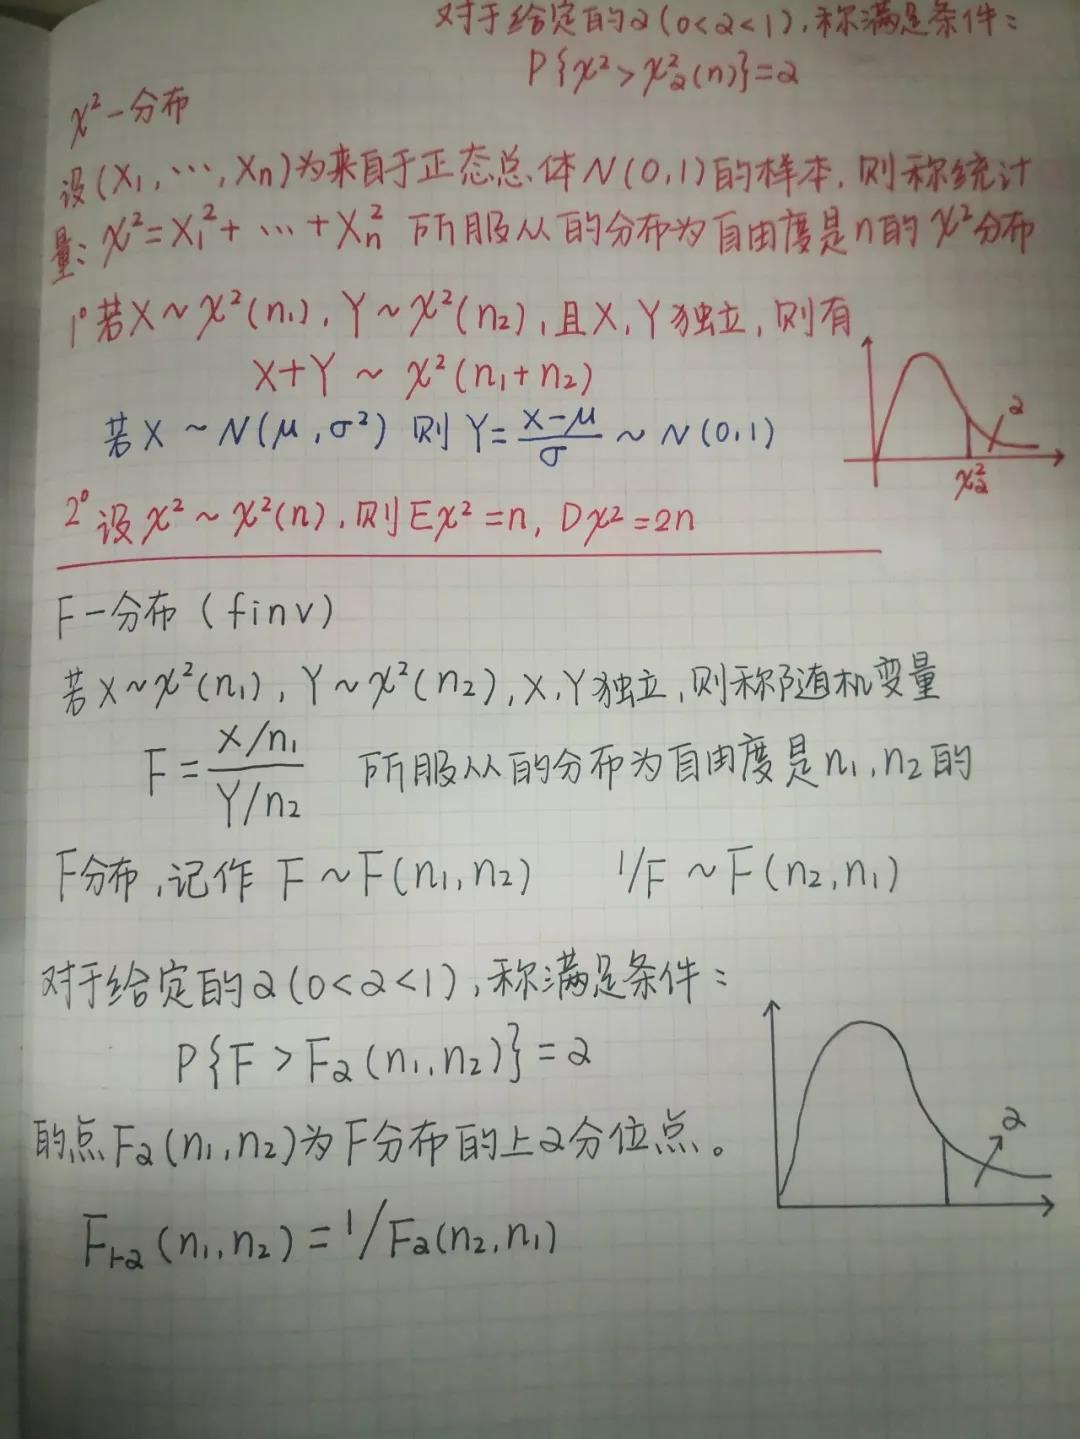 对于给定的α(0<α<1),称满足条件:
P{χ²>χ²α(n)}=α
χ²-分布
设(X₁,…,Xn)为来自于正态总体N(0,1)的样本,则称统计
量:χ²=X₁²+…+Xn² 所服从的分布为自由度是n的χ²分布
1°若X~χ²(n₁),Y~χ²(n₂),且X,Y独立,则有
X+Y~χ²(n₁+n₂)
若X~N(μ,σ²) 则Y=(X-μ)/σ~N(0,1)
α
χ²α
2°设χ²~χ²(n),则Eχ²=n, Dχ²=2n
F-分布(finv)
若X~χ²(n₁),Y~χ²(n₂),X,Y独立,则称随机变量
F=(X/n₁)/(Y/n₂) 所服从的分布为自由度是n₁,n₂的
F分布,记作 F~F(n₁,n₂) 1/F~F(n₂,n₁)
对于给定的α(0<α<1),称满足条件:
P{F>Fα(n₁,n₂)}=α
的点Fα(n₁,n₂)为F分布的上α分位点。
α
F1-α(n₁,n₂)=1/Fα(n₂,n₁)